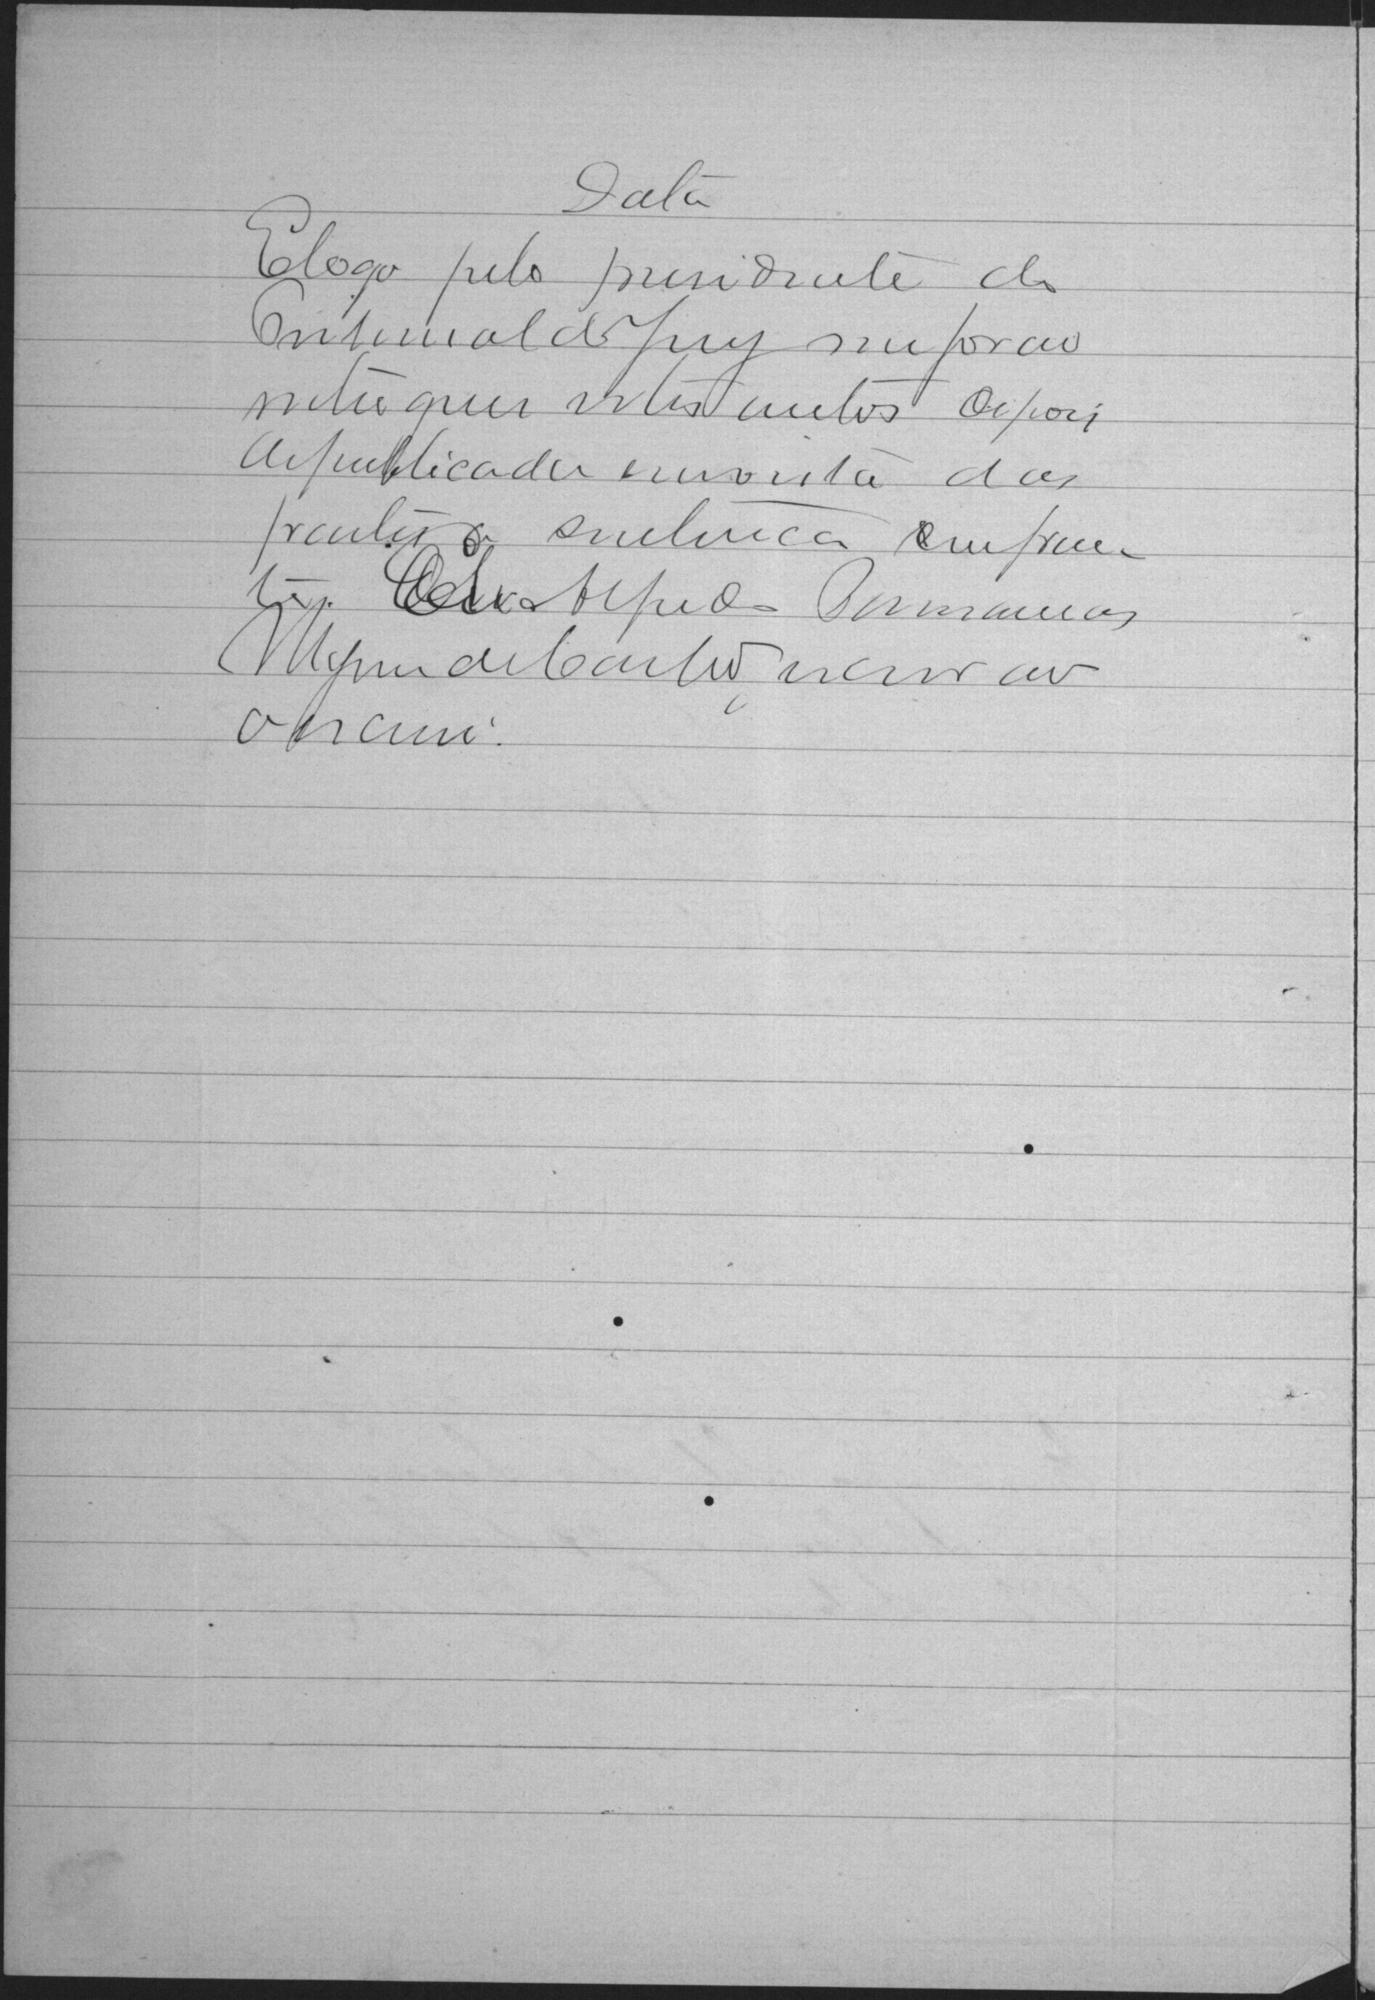 Data
E logo pelo presidente do
Tribunal do Jury me forão
entregues estes autos depois
de publicada em vista das
partes a sentença em frente
tes. Eu Alfredo
de Castro, escrivão
o escrevi.